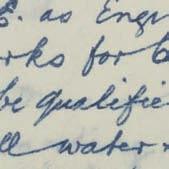 E. as Engi
rks for
be qualifie
ll water